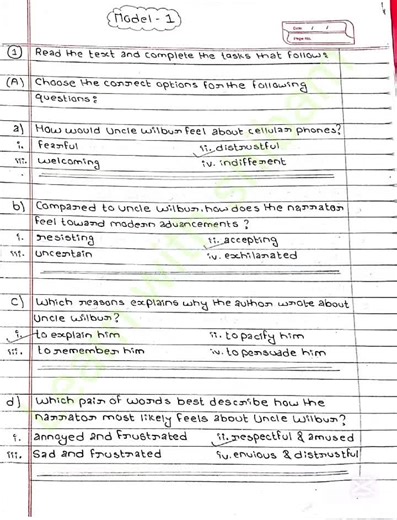 Model - 1
Date / /
Page No.
① Read the text and complete the tasks that follow:
(A) Choose the correct options for the following
questions:
a) How would Uncle Wilbur feel about cellular phones?
i. fearful ii. distrustful
iii. welcoming iv. indifferent
b) Compared to uncle wilbur, how does the narrator
feel toward modern advancements?
i. resisting ii. accepting
iii. uncertain iv. exhilarated
c) Which reasons explains why the author wrote about
Uncle Wilbur?
i. to explain him ii. to pacify him
iii. to remember him iv. to persuade him
d) Which pair of words best describe how the
narrator most likely feels about Uncle Wilbur?
i. annoyed and frustrated ii. respectful & amused
iii. Sad and frustrated iv. envious & distrustful